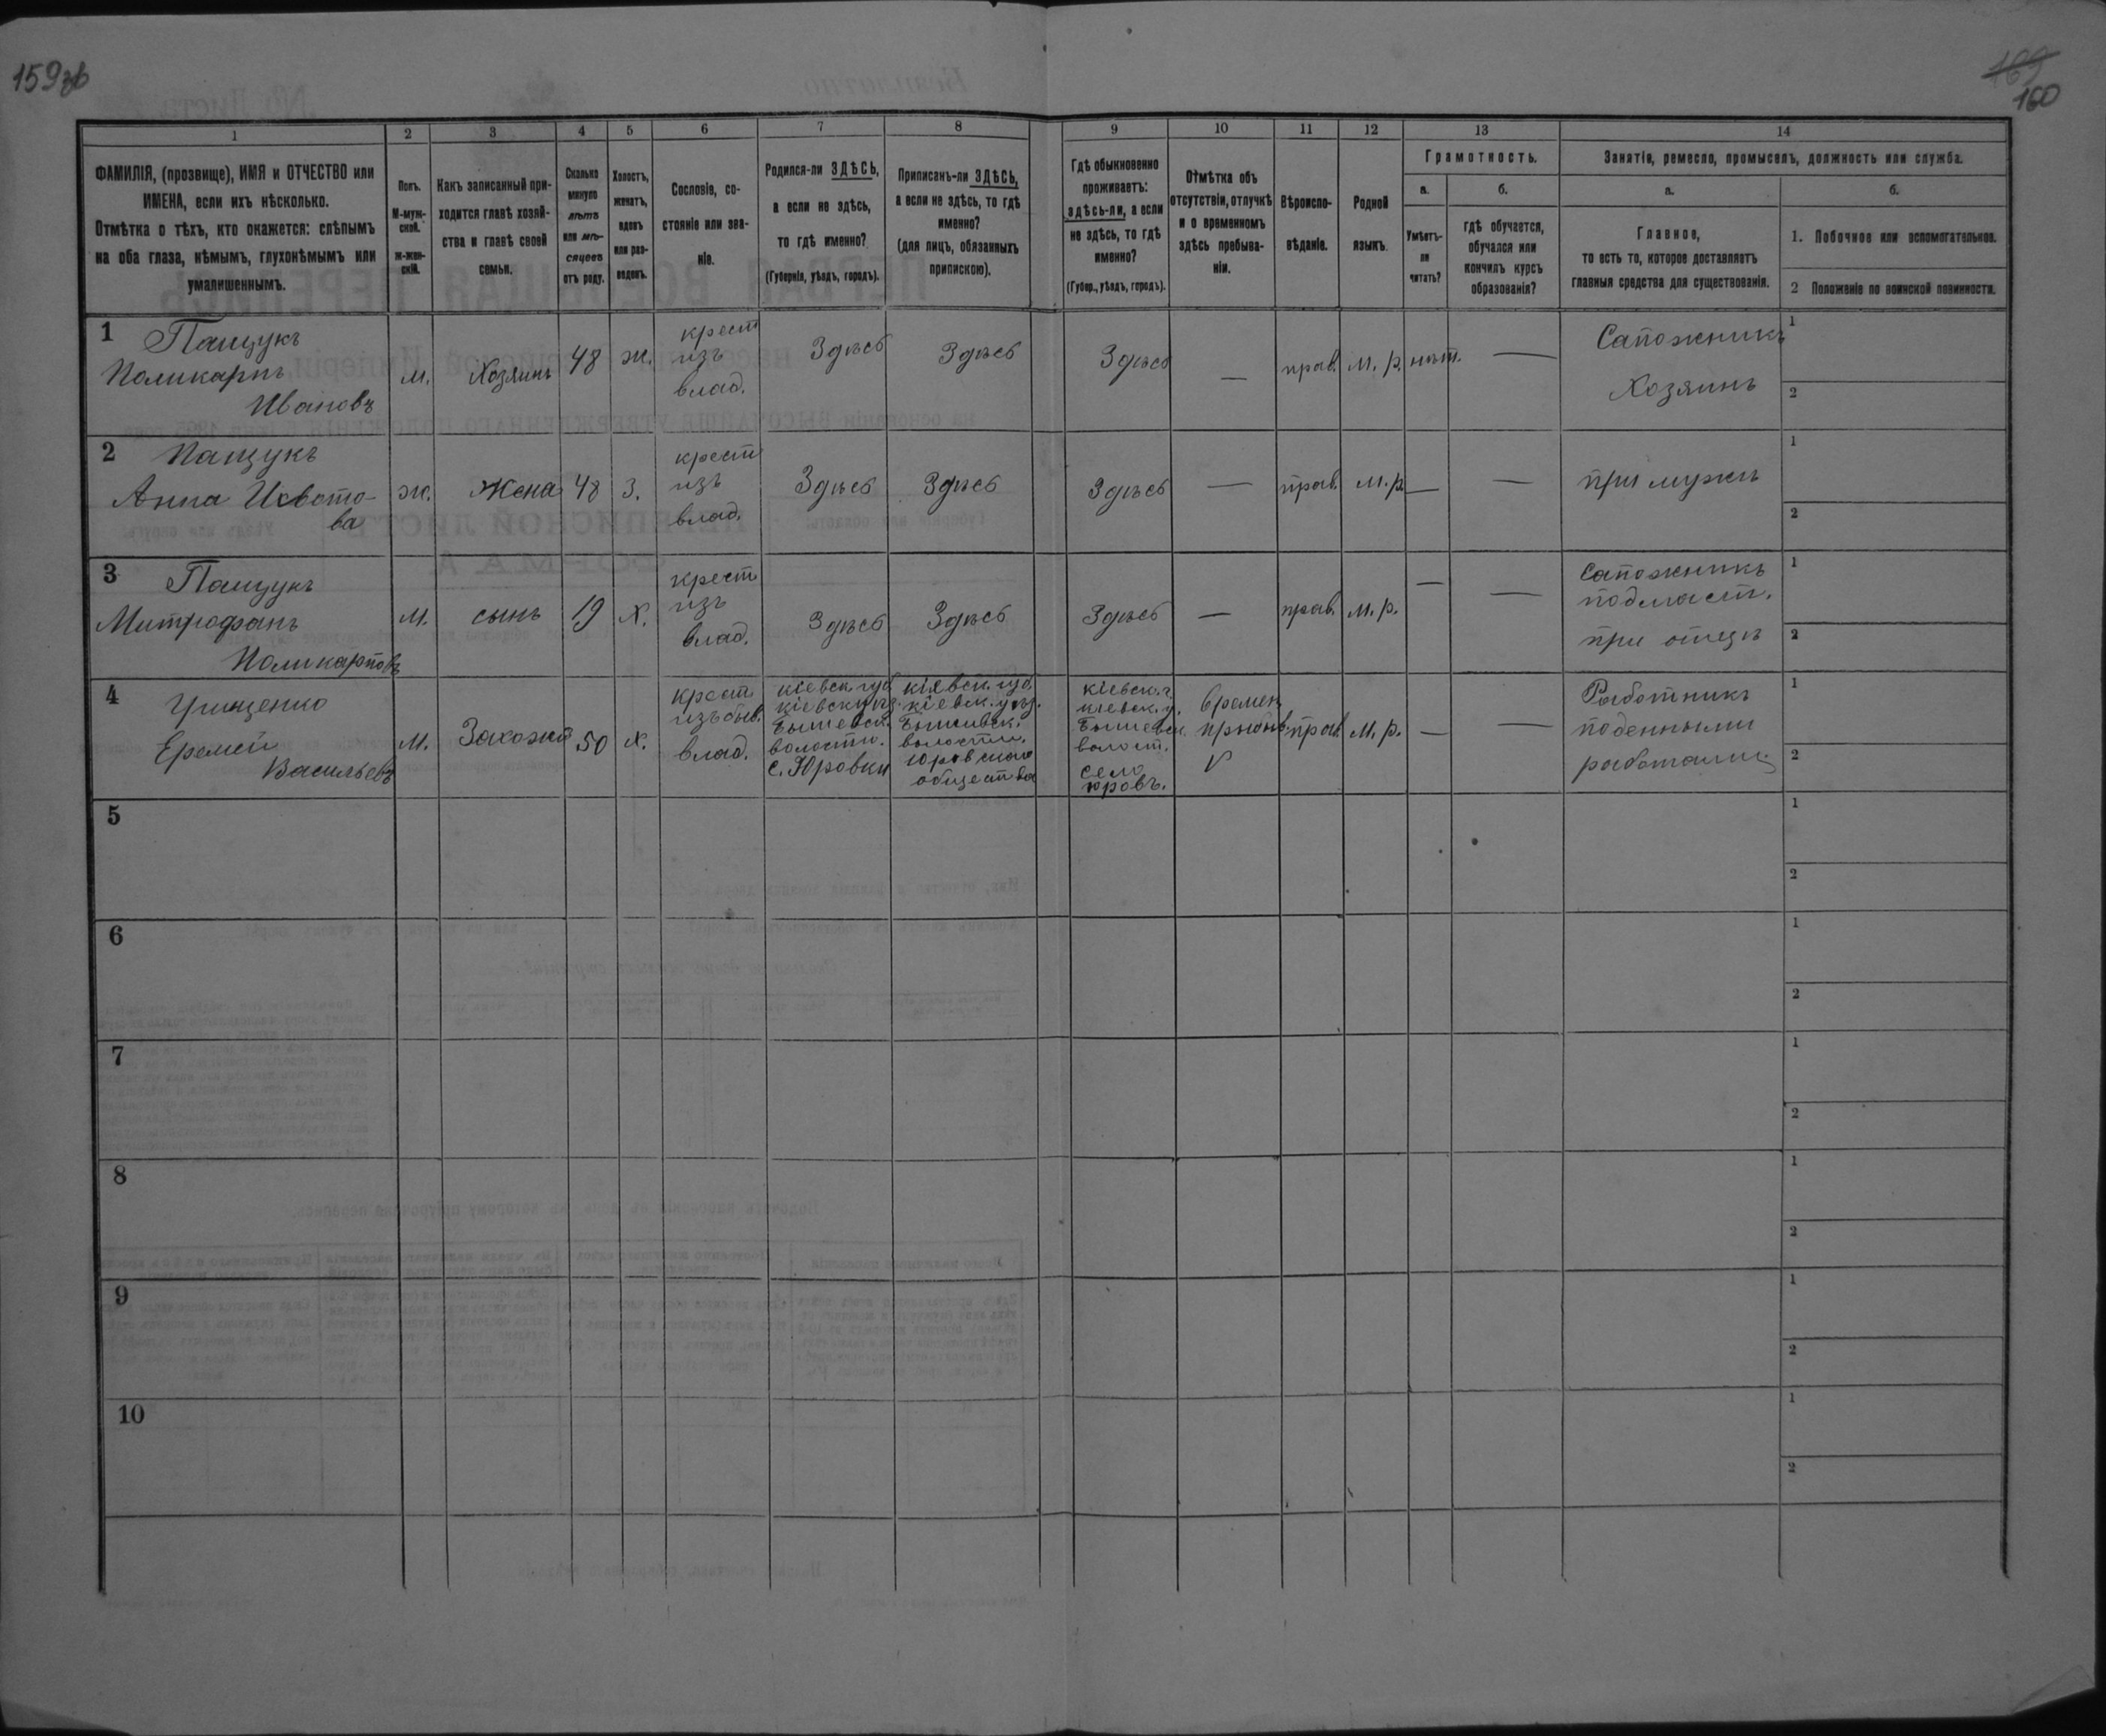 159зв
169
160
1
2
3
4
5
6
7
8
9
10
11
12
13
14
ФАМИЛІЯ, (прозвище), ИМЯ и ОТЧЕСТВО или
ИМЕНА, если ихъ нѣсколько.
Отмѣтка о тѣхъ, кто окажется: слѣпымъ
на оба глаза, нѣмымъ, глухонѣмымъ или
умалишеннымъ.
Полъ.
М-муж-
ской.
Ж-жен-
скій.
Какъ записанный при-
ходится главѣ хозяй-
ства и главѣ своей
семьи.
Сколько
минуло
лѣтъ
или мѣ-
сяцевъ
отъ роду.
Холостъ,
женатъ,
вдовъ
или раз-
веденъ.
Сословіе, со-
стояніе или зва-
ніе.
Родился-ли ЗДѢСЬ,
а если не здѣсь,
то гдѣ именно?
(Губернія, уѣздъ, городъ).
Приписанъ-ли ЗДѢСЬ,
а если не здѣсь, то гдѣ
именно?
(для лицъ, обязанныхъ
припискою).
Гдѣ обыкновенно
проживаетъ:
здѣсь-ли, а если
не здѣсь, то гдѣ
именно?
(Губер., уѣздъ, городъ).
Отмѣтка объ
отсутствіи, отлучкѣ
и о временномъ
здѣсь пребыва-
ніи.
Вѣроиспо-
вѣданіе.
Родной
языкъ.
Грамотность.
а.
б.
Умѣетъ-
ли
читать?
гдѣ обучается,
обучался или
кончилъ курсъ
образованія?
Занятіе, ремесло, промыселъ, должность или служба.
а.
б.
Главное,
то есть то, которое доставляетъ
главныя средства для существованія.
1. Побочное или вспомогательное.
2 Положеніе по воинской повинности.
1 Пащукъ
Поликарпъ
Ивановъ
м.
Хозяинъ
48
ж.
крест
изъ
влад.
Здѣсь
Здѣсь
Здѣсь
—
прав.
м. р.
нѣт.
—
Сапожникъ
Хозяинъ
1
2
2 Пащукъ
Анна
ва
ж.
Жена
48
З.
крест
изъ
влад.
Здѣсь
Здѣсь
Здѣсь
—
прав.
м. р.
—
—
при мужѣ
1
2
3 Пащукъ
Митрофанъ
Поликарповъ
м.
сынъ
19
х.
крест
изъ
влад.
Здѣсь
Здѣсь
Здѣсь
—
прав.
м. р.
—
—
Сапожникъ
подмаст.
при отцѣ
1
2
4 Грищенко
Еремей
Васильевъ
м.
Захожій
50
х.
крест
изъ быв.
влад.
кіевск. губ
кіевск. уѣз.
Бышевск.
волости.
с. Юровки
кіевск. губ.
кіевск. уѣз.
Бышевск.
волости.
Юровскаго
общества
кіевск. г.
кіевск. у.
Бышевск.
волост.
село
Юровъ.
Времен
прибыв
V
прав.
м. р.
—
—
Работникъ
поденными
работами
1
2
5
1
2
6
1
2
7
1
2
8
1
2
9
1
2
10
1
2